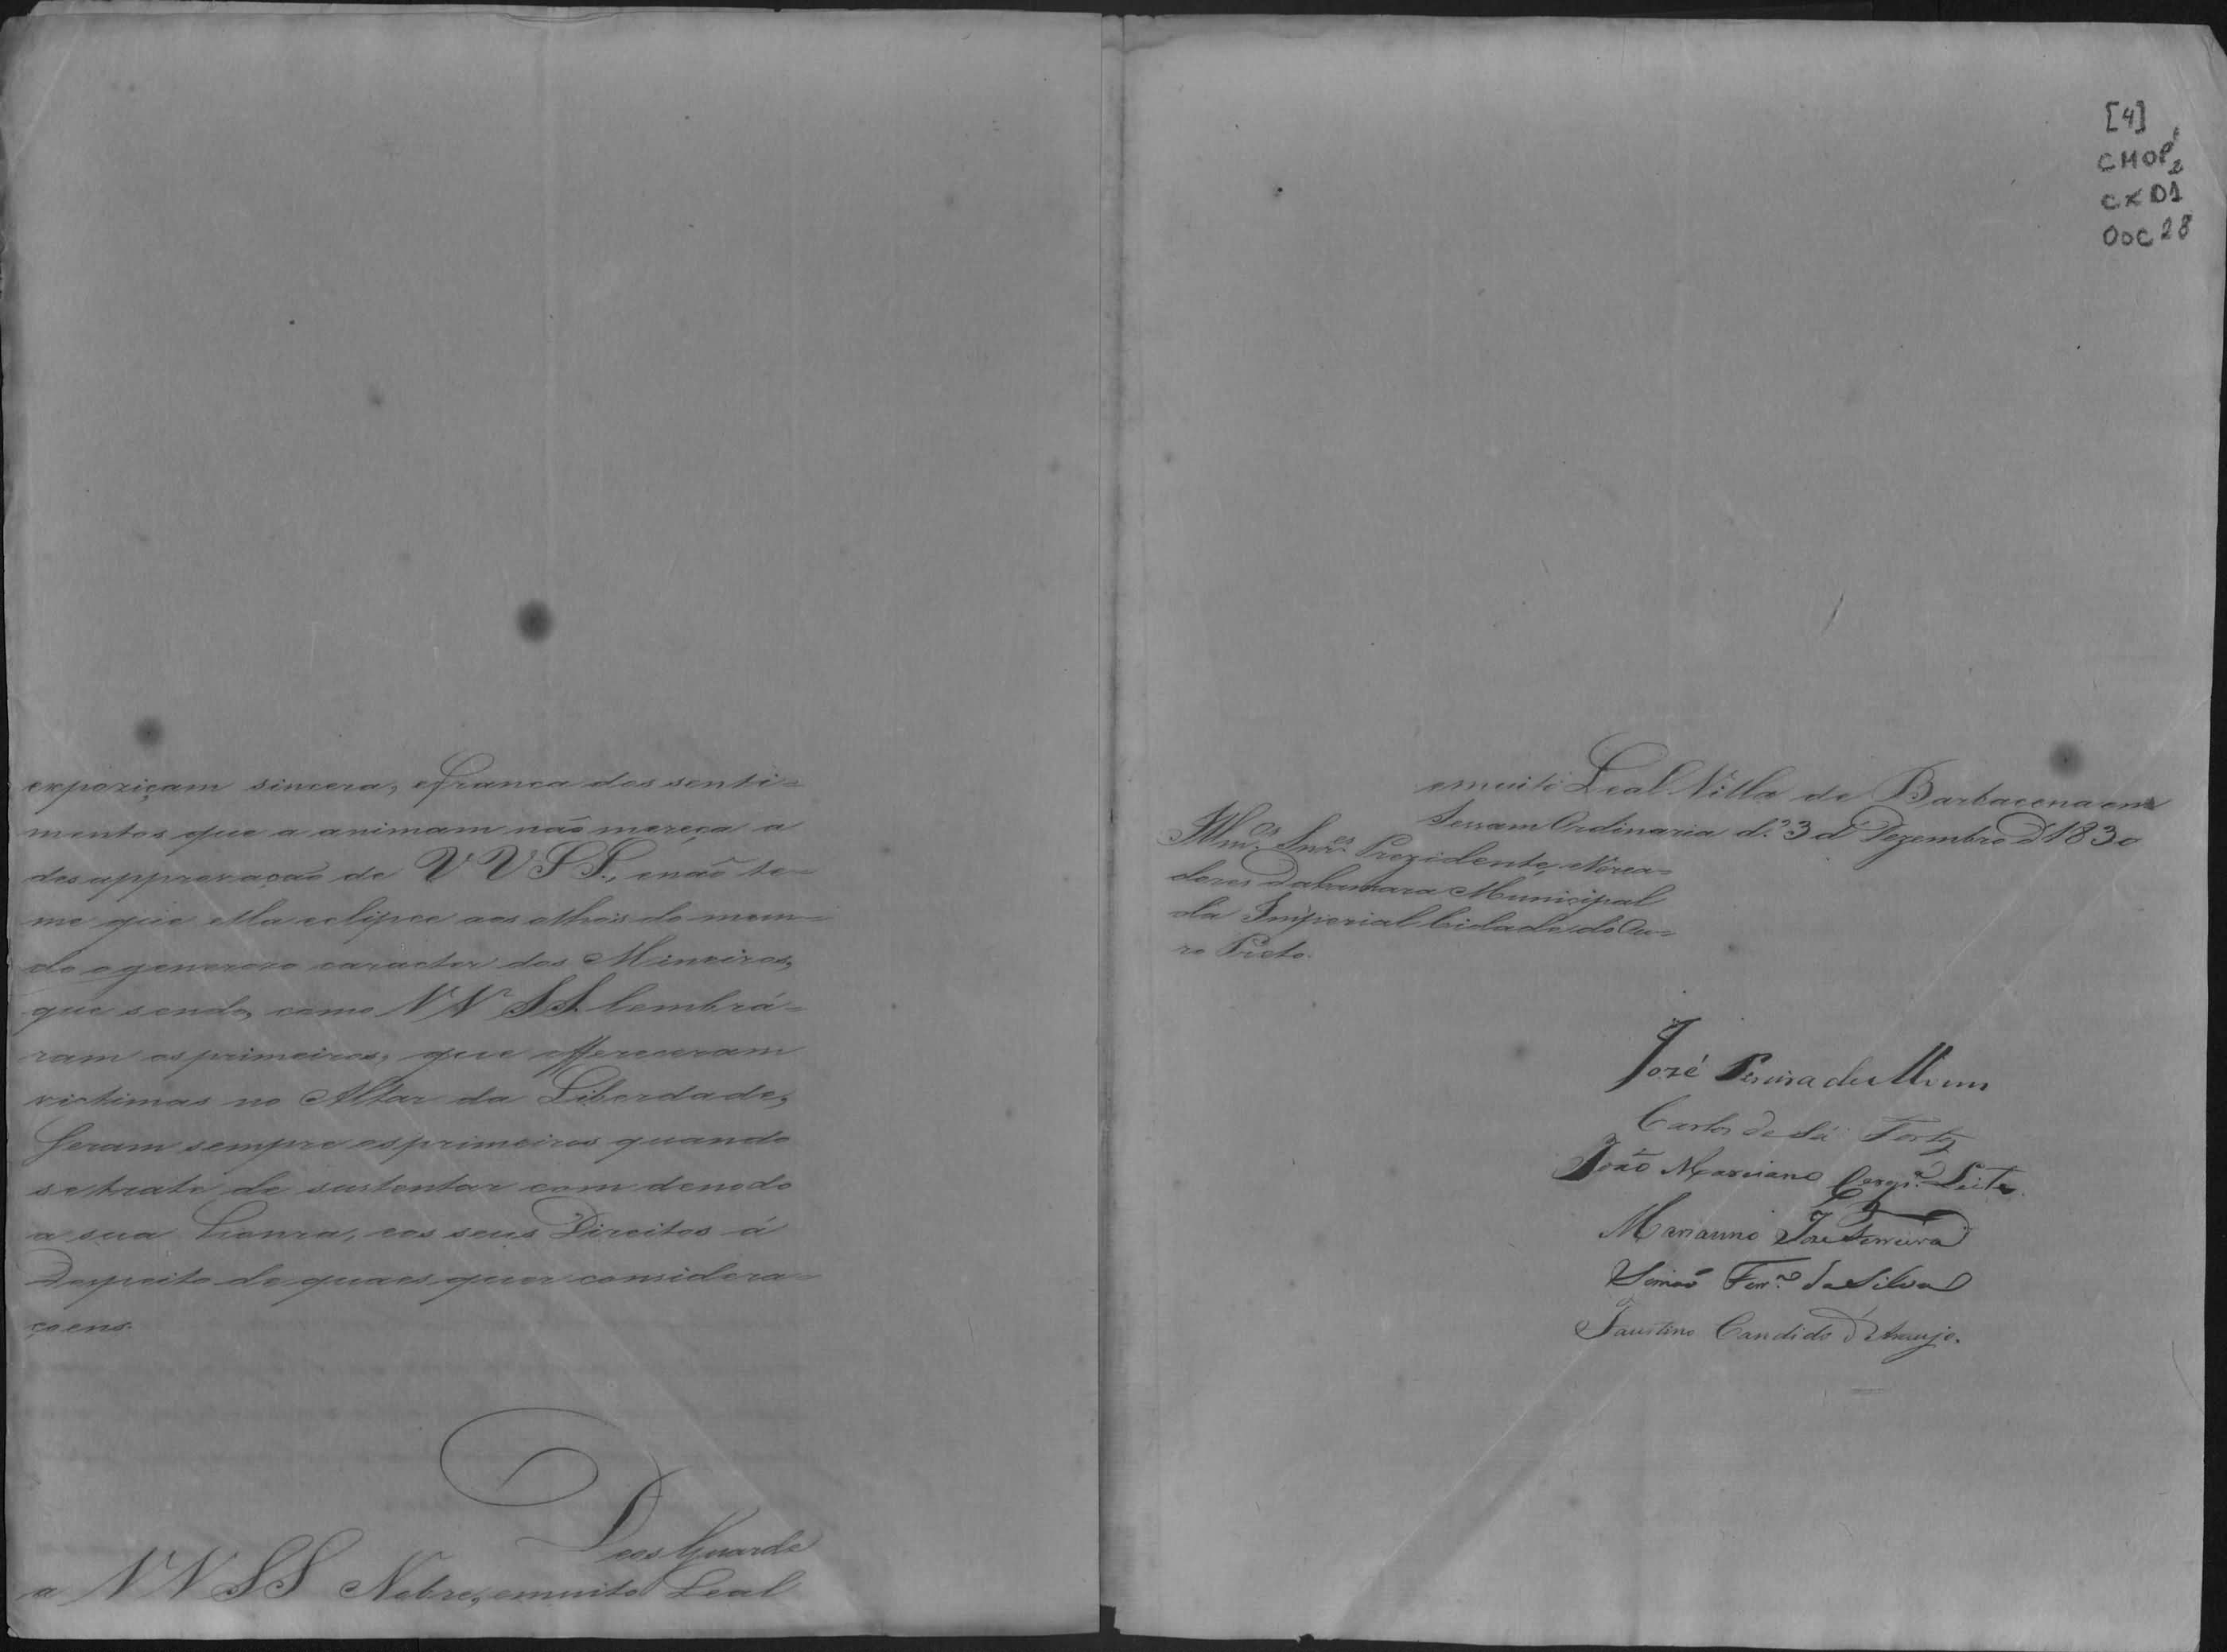 expoziçam sincera, efranca dos senti=
mentos que a animam não mereça a
desapprovação de VVSS., enaõ te=
me que ella eclipce aos olhos do mun=
do o generozo caracter dos Mineiros,
que sendo, como VVSS lembrá=
ram os primeiros, que offereceram
victimas no Altar da Liberdade,
seram sempre osprimeiros quando
setrate de sustentar com denodo
a sua honra, eos seus Direitos á
Despeito de quaes quer considera=
çoens.
Deos Guarde
a VVSS Nobre, emuito Leal
[4]
CMOP 1/2
CX01
DOC 28
emuito Leal Villa de Barbacena em
Sessam Ordinaria d.e 3 d' Dezembro d' 1830
Illmos. Snres. Prezidente, Verea=
dores Dacamara Municipal
da Imperial Cidade do Ou=
ro Preto.
José Pereira de
Carlos de Sá Fortes
João Marciano Cerqra. Leite
Marianno José Ferreira
Simaõ Ferra. da Silva
Faustino Candido d'Araujo.